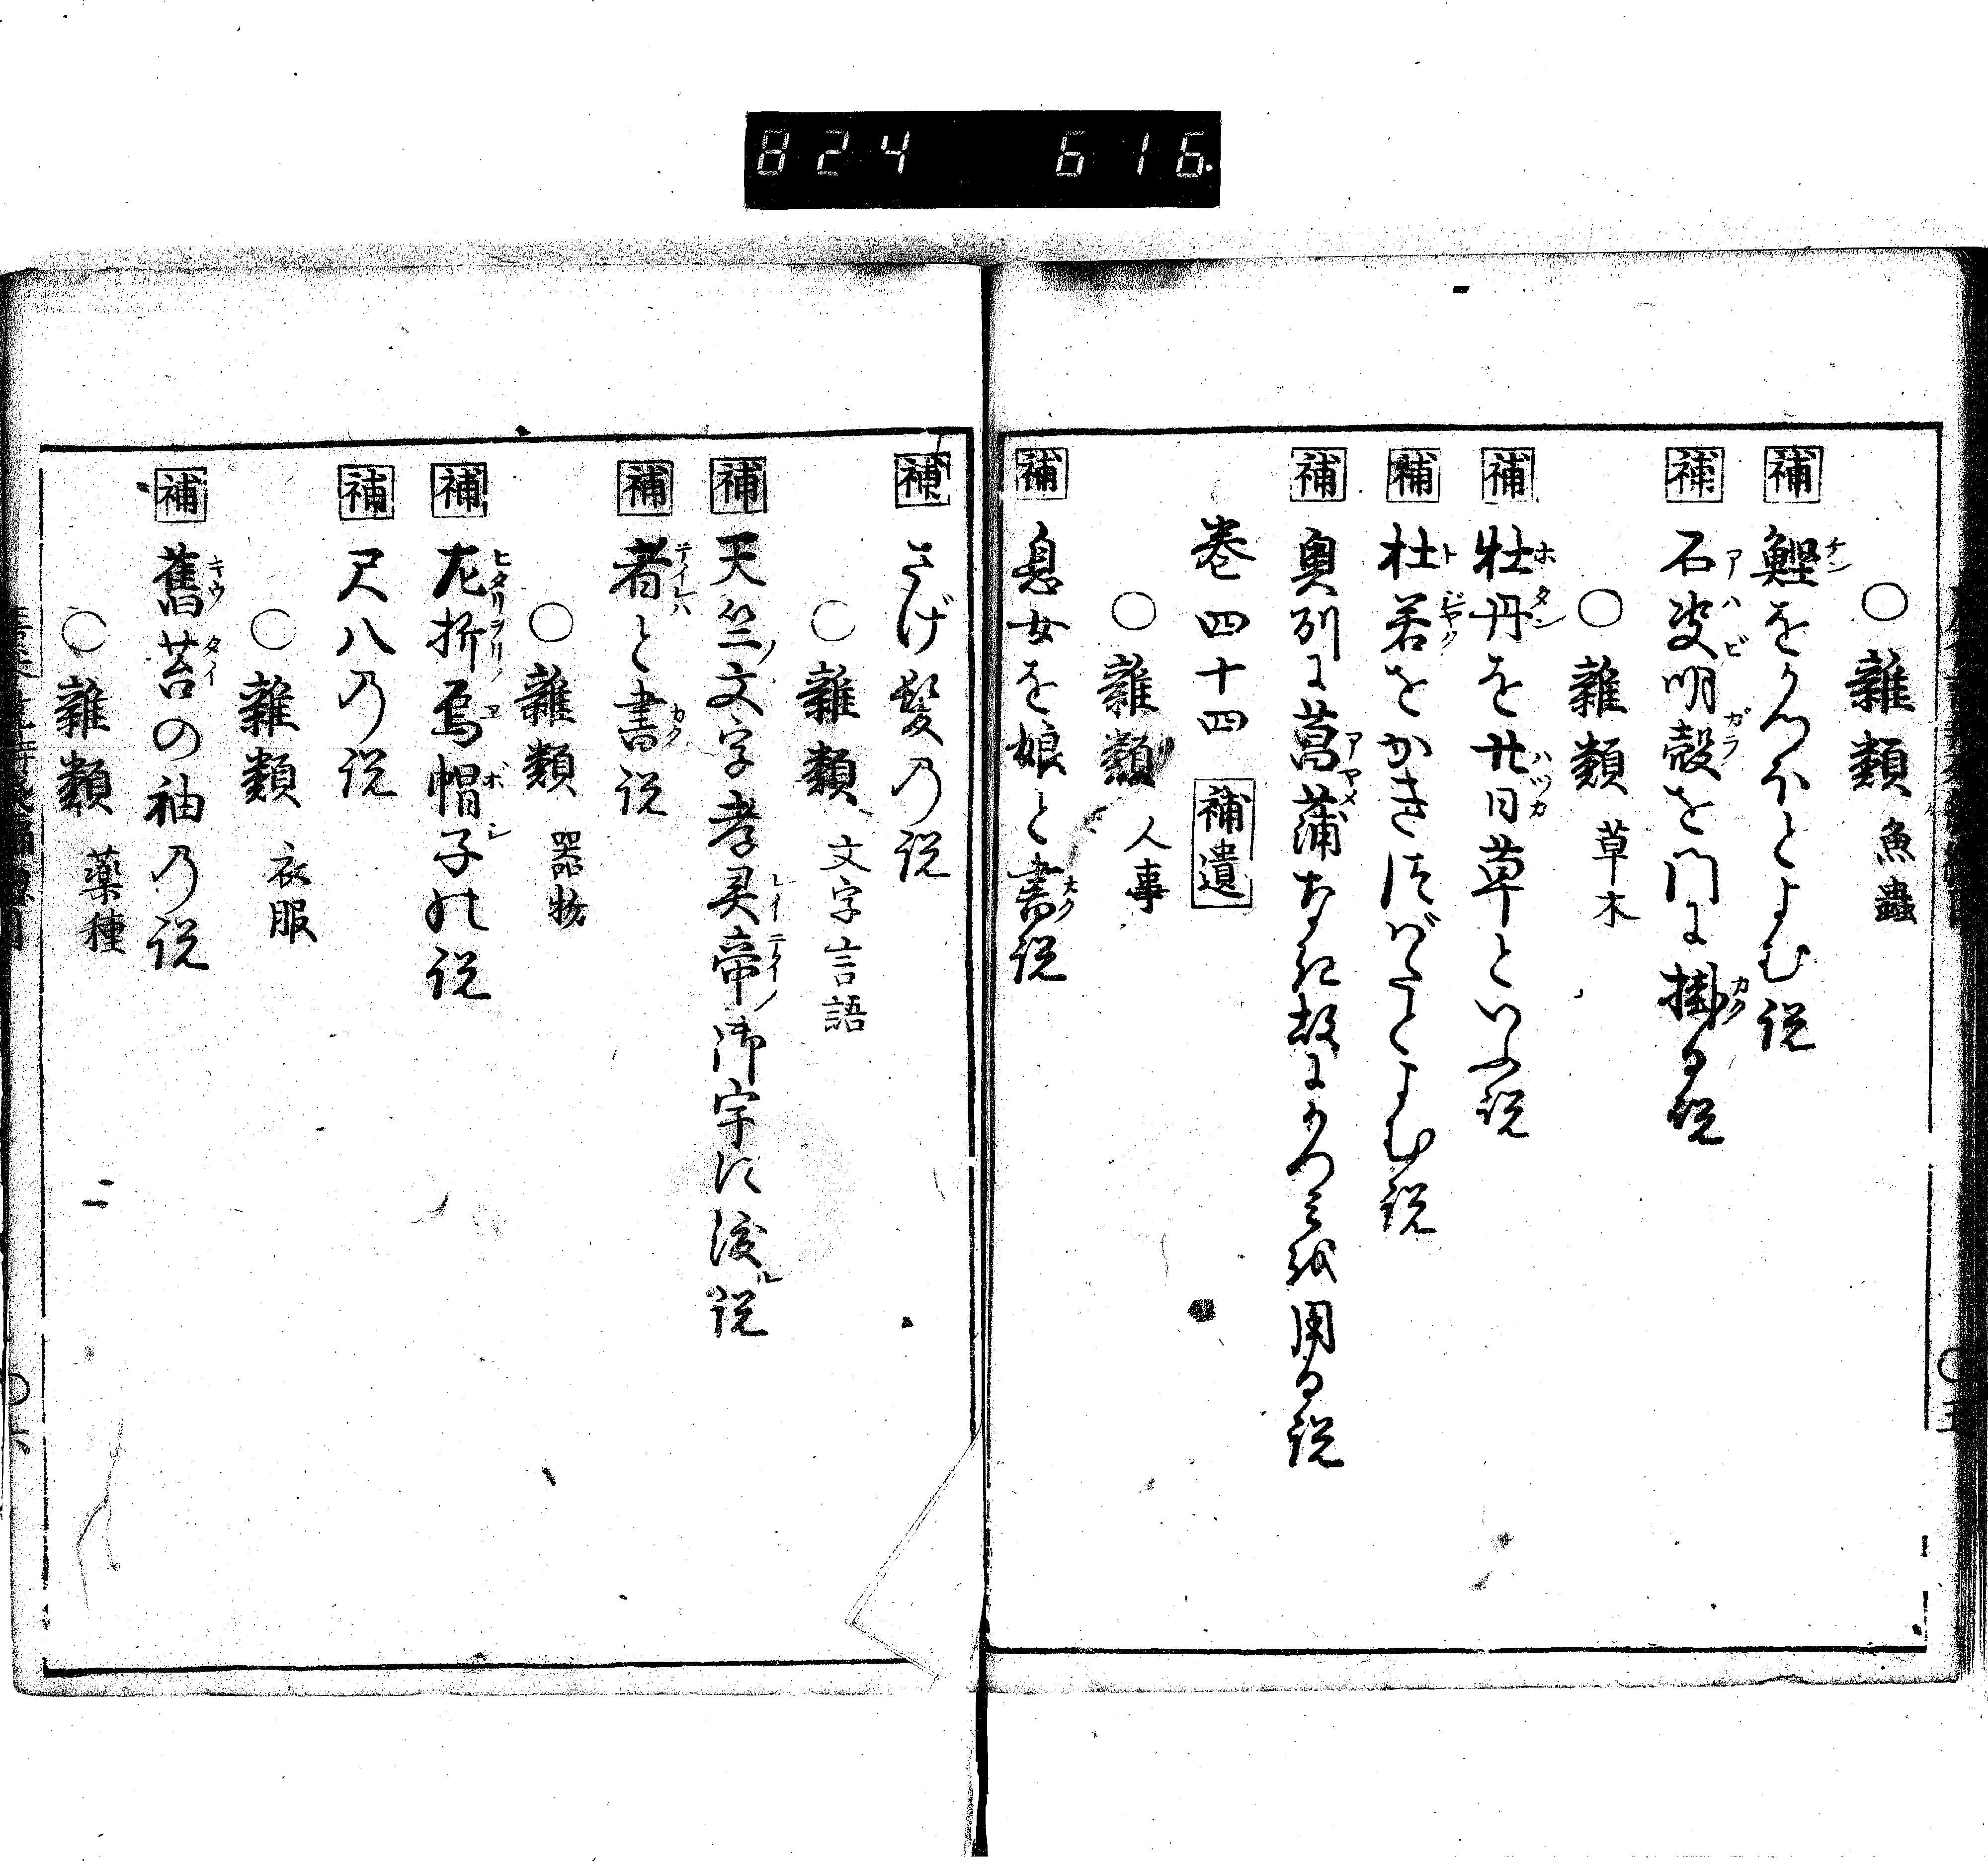 824 616.
○雑類 魚蟲
補 鰹をかつほとよむ説
補 石決明殻を門に掛る説
○雑類 草木
補 牡丹を廿日草といふ説
補 杜若をかきつばたとよむ説
補 奥列に菖蒲なき故にかつミを用る説
巻四十四 補遺
○雑類 人事
補 息女を娘と書説
補 さげ髪の説
○雑類 文字言語
補 天竺文字孝灵帝御宇に渡説
補 者と書説
○雑類 器物
補 左折烏帽子の説
補 尺八の説
○雑類 衣服
補 舊苔の袖の説
○雑類 薬種
○六